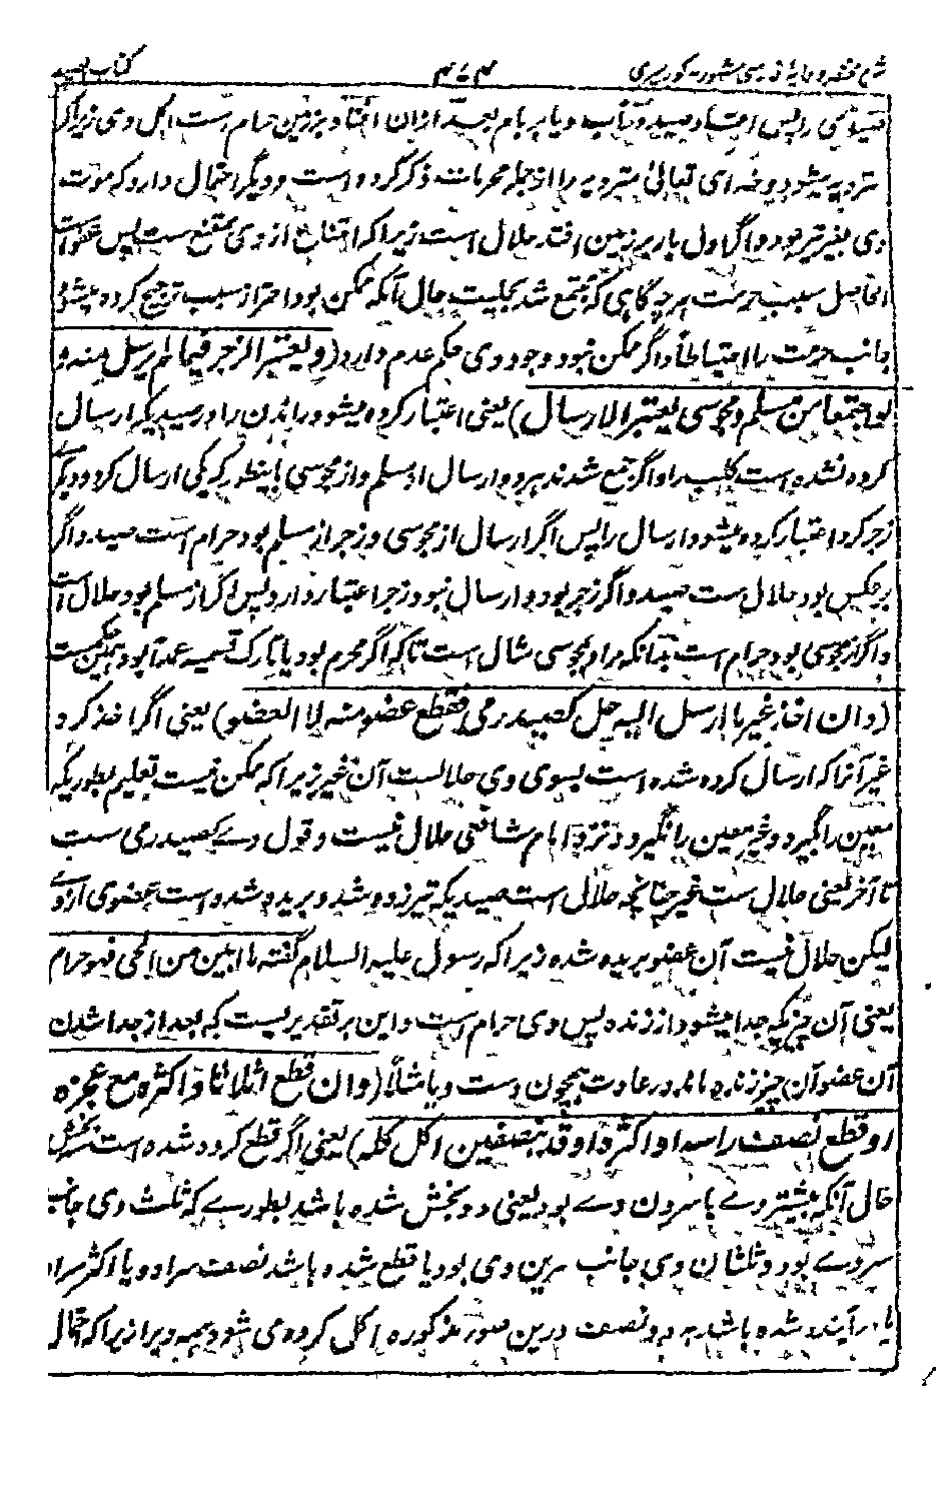 شرح مختصر وقایه فارسی مشهور بکور میری ۴۷۴ کتاب الصید
رمی را پس افتاد صید در آب و یا بر بام بعد ازان افتاد بر زمین حرام است اکل وی زیراکه
متردیه میشود و خدای تعالیٰ متردیه را از جمله محرمات ذکر کرده است و دیگر احتمال دارد که موت
وی بغیر تیر بود و اگر اول بار بر زمین افتد حلال است زیراکه امتناع از وی ممتنع ست پس عفو است
الحاصل سبب حرمت هرچه گاهی که مجتمع شد بحلیت حال آنکه ممکن بود احتراز سبب ترجیح کرده میشود
جانب حرمت را احتیاطاً و اگر ممکن نبود وجود وی حکم عدم دارد (و یعتبر الزجر فیما لم یرسل منه و
لو اجتمعا من مسلم و مجوسی یعتبر الارسال) یعنی اعتبار کرده میشود راندن را در صیدیکه ارسال
کرده نشده است کلب را و اگر جمع شدند هر دو ارسال از مسلم و از مجوسی باینطور که یکی ارسال کرد و دیگرے
زجر کرد اعتبار کرده میشود ارسال را پس اگر ارسال از مجوسی و زجر از مسلم بود حرام است صید و اگر
برعکس بود حلال ست صید و اگر زجر بود و ارسال نبود زجر اعتبار دارد پس اگر از مسلم بود حلال است
و اگر از مجوسی بود حرام است بدانکه مراد مجوسی مثال است تاکه اگر محرم بود یا تارک تسمیه عمداً بود همین حکمست
(و ان اخذ غیر ما ارسل الیه حل کصید رمی فقطع عضو منه لا العضو) یعنی اگر اخذ کرد
غیر آنرا که ارسال کرده شده است بسوی وی حلالست آن غیر زیراکه ممکن نیست تعلیم بطوریکه
معین را گیرد و غیر معین را نگیرد و نزد امام شافعی حلال نیست و قول وے کصید رمی ست
تا آخر یعنی حلال ست غیر چنانچه حلال است صیدیکه تیر زده شد و بریده شده است عضوی از وے
لیکن حلال نیست آن عضو بریده شده زیراکه رسول علیه السلام گفته ما ابین من الحی فهو حرام
یعنی آن چیزیکه جدا میشود از زنده پس وی حرام است و این بر تقدیریست که بعد از جدا شدن
آن عضو آن چیز زنده ماند در عادت همچون دست و پا مثلاً (و ان قطع اثلاثا و اکثره مع عجزه
او قطع نصف راسه او اکثره او قد بنصفین اکل کله) یعنی اگر قطع کرده شده است سه بخش
حال آنکه بیشتر وے با سرون وے بود یعنی دو بخش شده باشد بطورے که ثلث وی جانب
سر وے بود و ثلثان وی جانب سرین وی بود یا قطع شده باشد نصف سر او و یا اکثر سر او
یا برآینده شده باشد به دو نصف درین صور مذکوره اکل کرده می شود همه ویرا زیراکه حال